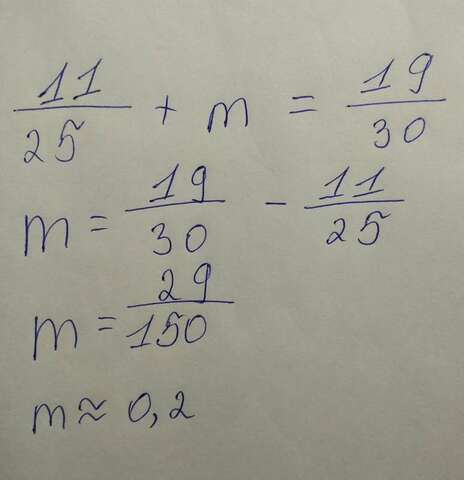 11/25 + m = 19/30
m = 19/30 - 11/25
m = 29/150
m ≈ 0,2